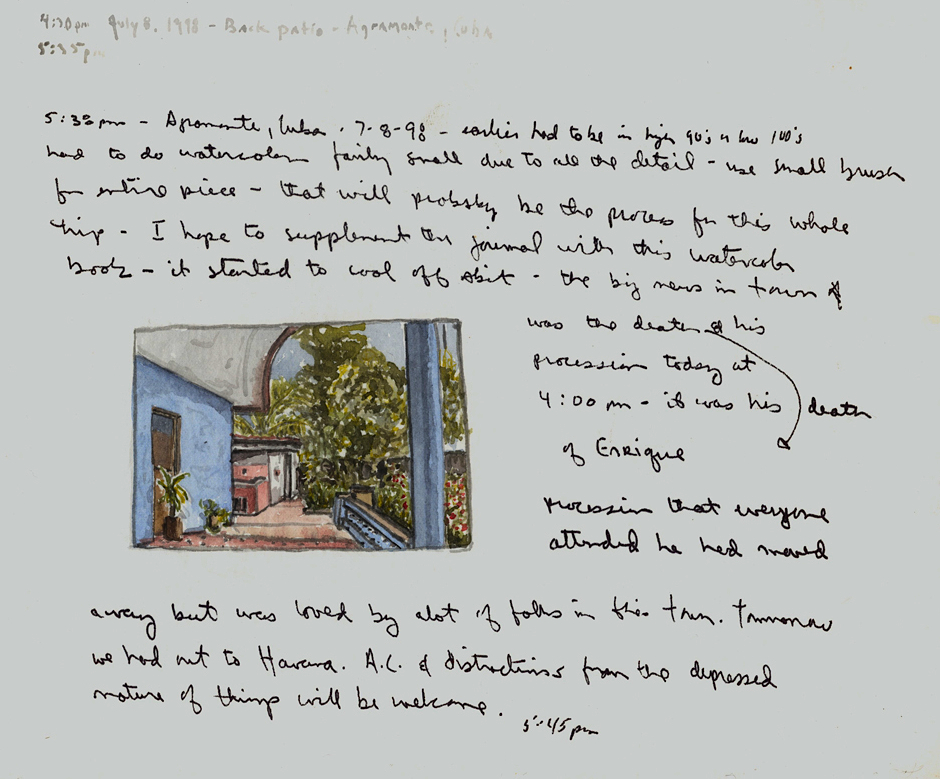 4:30pm July 8, 1998 - Back patio - Agramonte, Cuba
5:35pm
5:38pm - Agramonte, Cuba. 7-8-98 - earlier had to be in high 90's or low 100's
had to do watercolor fairly small due to all the detail - use small brush
for entire piece - that will probably be the process for this whole
trip - I hope to supplement the journal with this watercolor
book - it started to cool off abit - the big news in town
was the death & his
procession today at
4:00 pm - it was his death
of Enrique
procession that everyone
attended he had moved
away but was loved by alot of folks in this town. Tommorow
we head out to Havana. A.C. & distractions from the depressed
nature of things will be welcome.
5:45pm